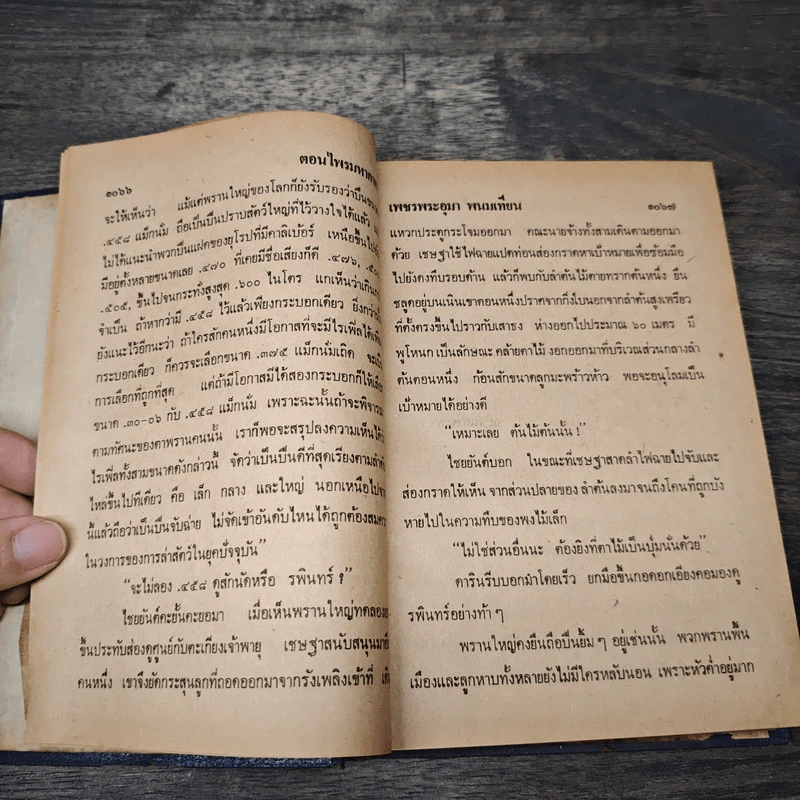 ๑๐๖๖
ตอนไพรมหากาฬ
จะให้เห็นว่า แม้แต่พรานใหญ่ของโลกก็ยังรับรองว่าปืนขนาด
.๔๕๘ แม็กนั่ม ถือเป็นปืนปราบสัตว์ใหญ่ที่ไว้วางใจได้แล้ว
ไม่ได้แนะนำพวกปืนแฝดของยุโรปที่มีคาลิเบ้อร์ เหนือขึ้นไป
มีอยู่ตั้งหลายขนาดเลย .๔๗๐ ที่เคยมีชื่อเสียงก็ดี .๔๗๖, .๕๐๐
.๕๐๕, ขึ้นไปจนกระทั่งสูงสุด .๖๐๐ ไนโตร แกเห็นว่าเกินความ
จำเป็น ถ้าหากว่ามี .๔๕๘ ไว้แล้วเพียงกระบอกเดียว ยิ่งกว่านั้น
ยังแนะไว้อีกนะว่า ถ้าใครสักคนหนึ่งมีโอกาสที่จะมีไรเฟิ่ลได้เพียง
กระบอกเดียว ก็ควรจะเลือกขนาด .๓๗๕ แม็กนั่มเถิด จะเป็น
การเลือกที่ถูกที่สุด แต่ถ้ามีโอกาสมีได้สองกระบอกก็ให้เลือก
ขนาด .๓๐-๐๖ กับ .๔๕๘ แม็กนั่ม เพราะฉะนั้นถ้าจะพิจารณา
ตามทัศนะของตาพรานคนนั้น เราก็พอจะสรุปลงความเห็นได้ว่า
ไรเฟิ่ลทั้งสามขนาดดังกล่าวนี้ จัดว่าเป็นปืนดีที่สุดเรียงตามลำดับ
ไหล่ขึ้นไปทีเดียว คือ เล็ก กลาง และใหญ่ นอกเหนือไปจาก
นี้แล้วถือว่าเป็นปืนจับฉ่าย ไม่จัดเข้าอันดับไหนได้ถูกต้องสมควร
ในวงการของการล่าสัตว์ในยุคปัจจุบัน”
“จะไม่ลอง .๔๕๘ ดูสักนัดหรือ รพินทร์ ?
ไชยยันต์คะยั้นคะยอมา เมื่อเห็นพรานใหญ่ทดลอง
ขึ้นประทับส่องดูศูนย์กับตะเกียงเจ้าพายุ เชษฐาสนับสนุนมาอีก
คนหนึ่ง เขาจึงยัดกระสุนลูกที่ถอดออกมาจากรังเพลิงเข้าที่ เดิน
เพชรพระอุมา พนมเทียน
๑๐๖๗
แหวกประตูกระโจมออกมา คณะนายจ้างทั้งสามเดินตามออกมา
ด้วย เชษฐาใช้ไฟฉายแปดท่อนส่องกราดหาเป้าหมายเพื่อซ้อมมือ
ไปยังดงทึบรอบด้าน แล้วก็พบกับลำต้นไม้ตายทรากต้นหนึ่ง ยืน
ชลูดอยู่บนเนินเขาตอนหนึ่งปราศจากกิ่งใบนอกจากลำต้นสูงเพรียว
ที่ตั้งตรงขึ้นไปราวกับเสาธง ห่างออกไปประมาณ ๖๐ เมตร มี
พูโหนก เป็นลักษณะ คล้ายตาไม้ งอกออกมาที่บริเวณส่วนกลางลำ
ต้นตอนหนึ่ง ก้อนสักขนาดลูกมะพร้าวห้าว พอจะอนุโลมเป็น
เป้าหมายได้อย่างดี
“เหมาะเลย ต้นไม้ต้นนั้น !”
ไชยยันต์บอก ในขณะที่เชษฐาสาดลำไฟฉายไปจับและ
ส่องกราดให้เห็น จากส่วนปลายของ ลำต้นลงมาจนถึงโคนที่ถูกบัง
หายไปในความทึบของพงไม้เล็ก
“ไม่ใช่ส่วนอื่นนะ ต้องยิงที่ตาไม้เป็นปุ่มนั่นด้วย”
ดารินรีบบอกมาโดยเร็ว ยกมือขึ้นกอดอกเอียงคอมองดู
รพินทร์อย่างท้า ๆ
พรานใหญ่คงยืนถือปืนยิ้ม ๆ อยู่เช่นนั้น พวกพรานพื้น
เมืองและลูกหาบทั้งหลายยังไม่มีใครหลับนอน เพราะหัวค่ำอยู่มาก